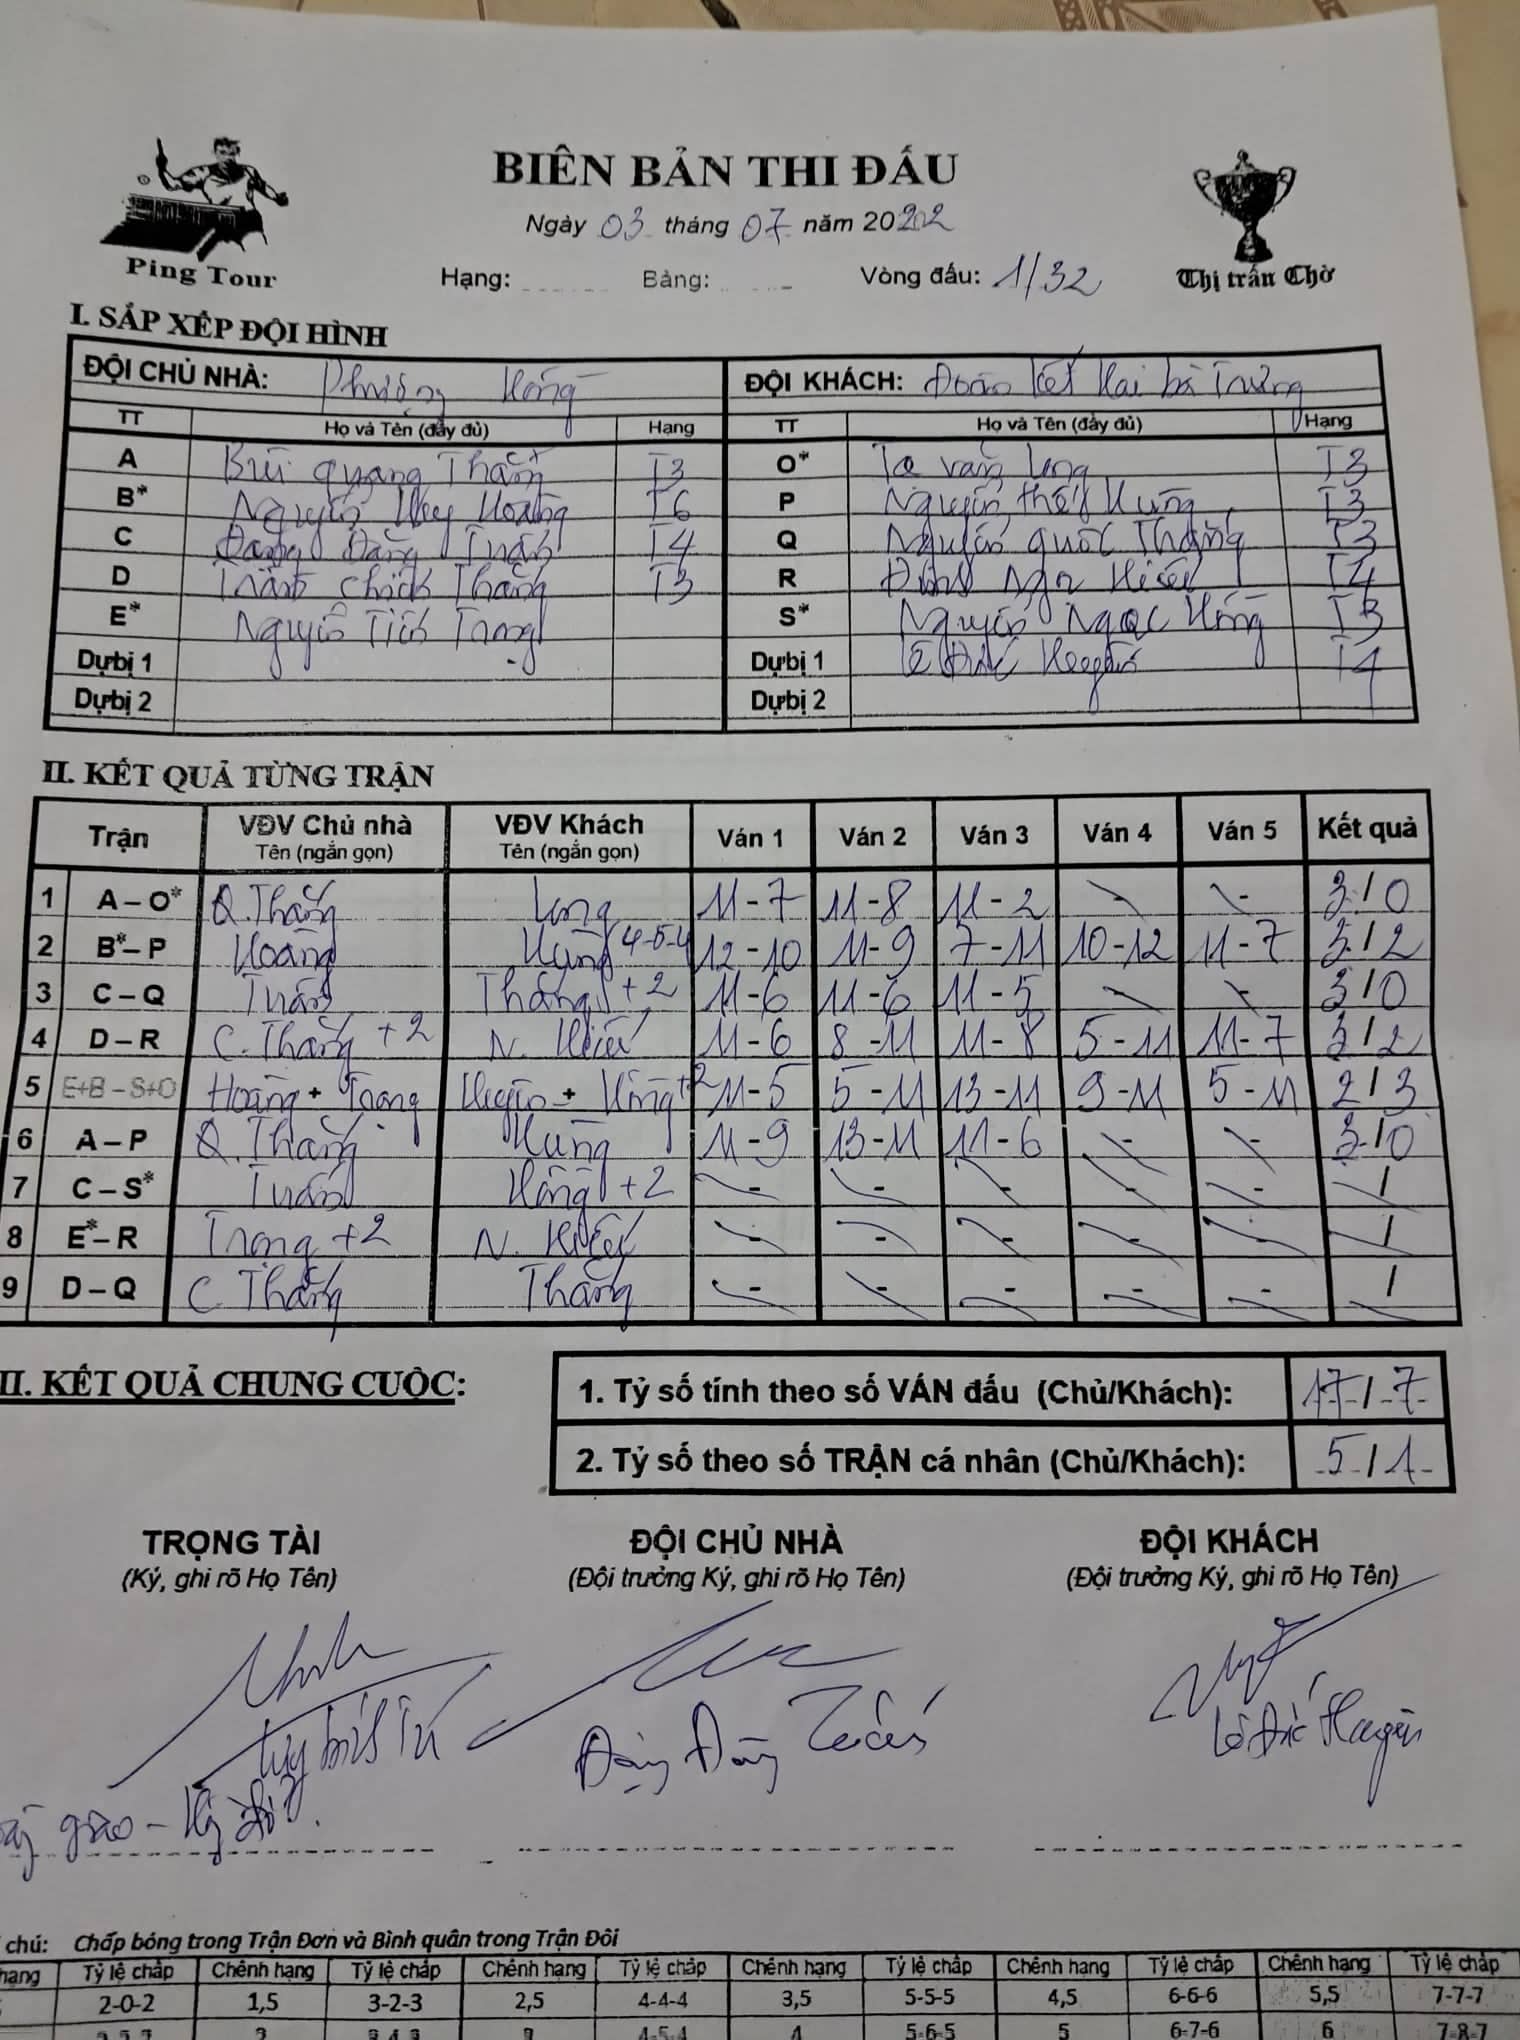 BIÊN BẢN THI ĐẤU
Ngày 03 tháng 07 năm 20202
Ping Tour
Hạng: Bảng: Vòng đấu: 1/32
Thị trấn Chờ
I. SẮP XẾP ĐỘI HÌNH
ĐỘI CHỦ NHÀ: Phượng Hồng ĐỘI KHÁCH: Đoàn Kết Hai bà Trưng
TT Họ và Tên (đầy đủ) Hạng TT Họ và Tên (đầy đủ) Hạng
A Bùi quang Thắng T3 O* Tạ văn Long T3
B* Nguyễn Huy Hoàng T6 P Nguyễn thế Hưng T3
C Đặng Đăng Tuấn T4 Q Nguyễn quốc Thắng T3
D Trần chích Thắng T3 R Đinh Ngọc Hiếu T4
E* Nguyễn Tiến Trọng S* Nguyễn Ngọc Hồng T3
Dựbị 1 Dựbị 1 Lê Đức T4
Dựbị 2 Dựbị 2
II. KẾT QUẢ TỪNG TRẬN
Trận VĐV Chủ nhà Tên (ngắn gọn) VĐV Khách Tên (ngắn gọn) Ván 1 Ván 2 Ván 3 Ván 4 Ván 5 Kết quả
1 A – O* Q.Thắng Long 11-7 11-8 11-2 - - 3/0
2 B* – P Hoàng Hưng 4-5-4 12-10 11-9 7-11 10-12 11-7 3/2
3 C – Q Tuấn Thắng +2 11-6 11-6 11-5 - - 3/0
4 D – R C. Thắng +2 N. Hiếu 11-6 8-11 11-8 5-11 11-7 3/2
5 E+B – S+O Hoàng + Trọng + Hồng +2 11-5 5-11 13-11 9-11 5-11 2/3
6 A – P Q. Thắng Hưng 11-9 13-11 11-6 - - 3/0
7 C – S* Tuấn Hồng +2 - - - - - /
8 E* – R Trọng +2 N. Hiếu - - - - - /
9 D – Q C. Thắng Thắng - - - - - /
II. KẾT QUẢ CHUNG CUỘC:
1. Tỷ số tính theo số VÁN đấu (Chủ/Khách): 17/7
2. Tỷ số theo số TRẬN cá nhân (Chủ/Khách): 5/1
TRỌNG TÀI ĐỘI CHỦ NHÀ ĐỘI KHÁCH
(Ký, ghi rõ Họ Tên) (Đội trưởng Ký, ghi rõ Họ Tên) (Đội trưởng Ký, ghi rõ Họ Tên)
Đặng Đăng Tuấn
chú: Chấp bóng trong Trận Đơn và Bình quân trong Trận Đôi
hạng Tỷ lệ chấp Chênh hạng Tỷ lệ chấp Chênh hạng Tỷ lệ chấp Chênh hạng Tỷ lệ chấp Chênh hạng Tỷ lệ chấp Chênh hạng Tỷ lệ chấp
2-0-2 1,5 3-2-3 2,5 4-4-4 3,5 5-5-5 4,5 6-6-6 5,5 7-7-7
4-5-4 4 5-6-5 5 6-7-6 6 7-8-7